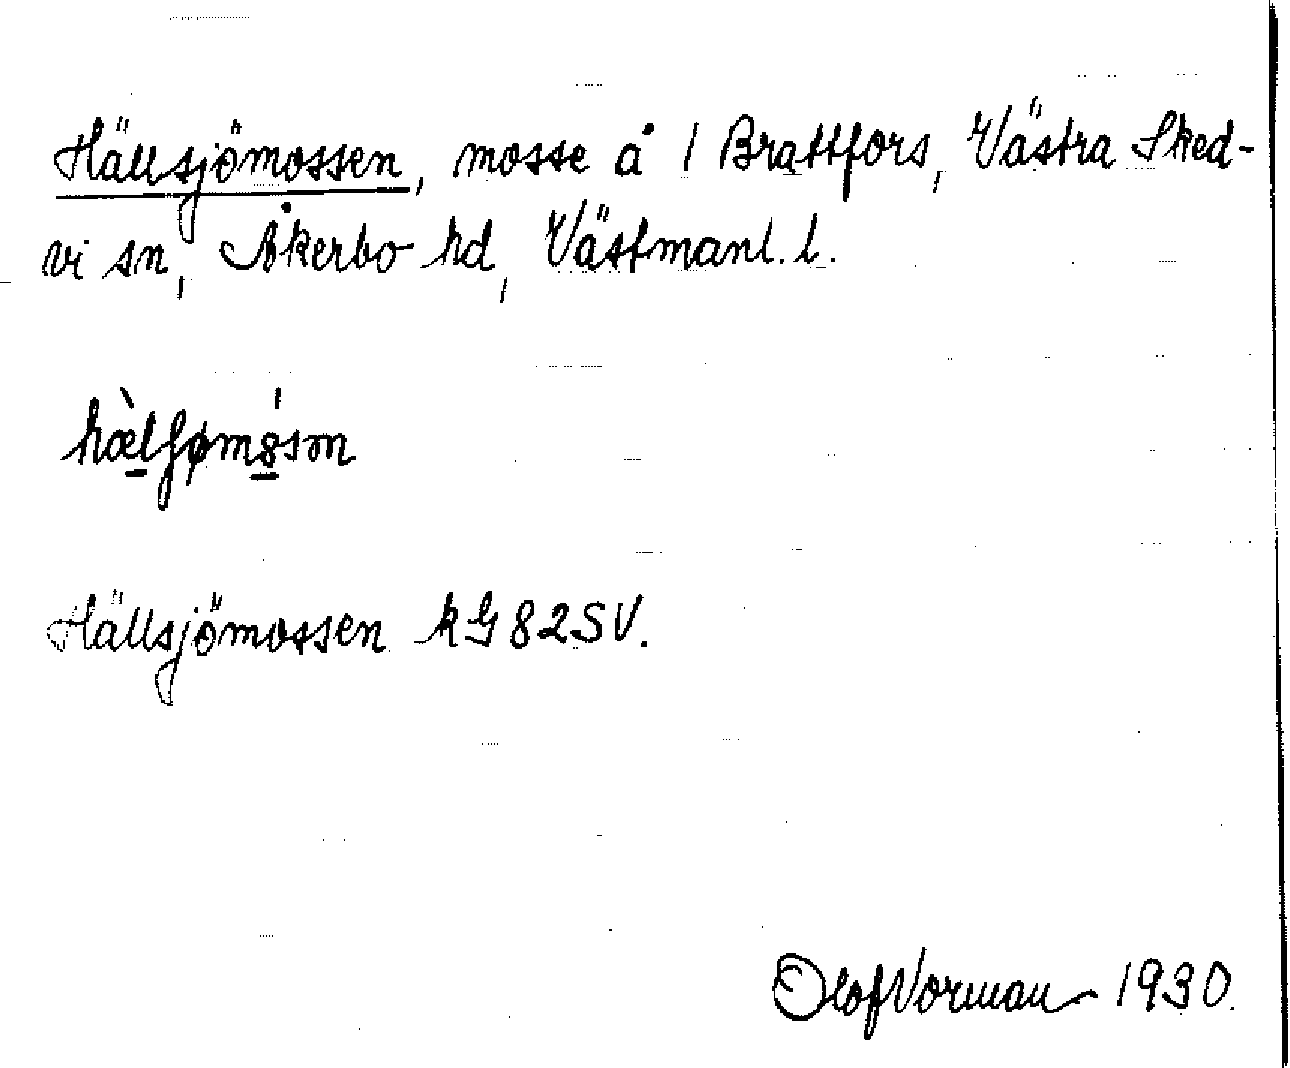 Hällsjömossen, mosse å 1 Brattfors, Västra Sked-
vi sn, Åkerbo hd, Västmanl. l.
Hällsjömossen kG82SV.
Olof Vorman 1930.